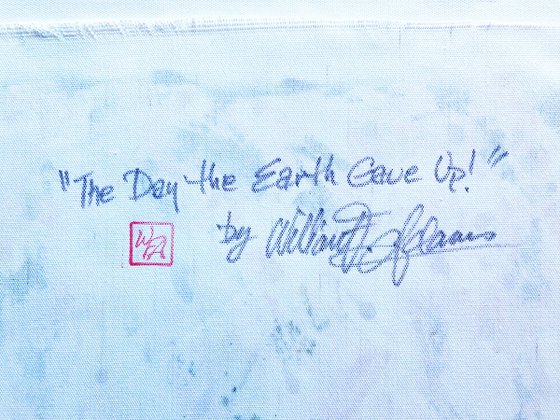 "The Day the Earth Gave Up!"
by William F. Adams
WFA